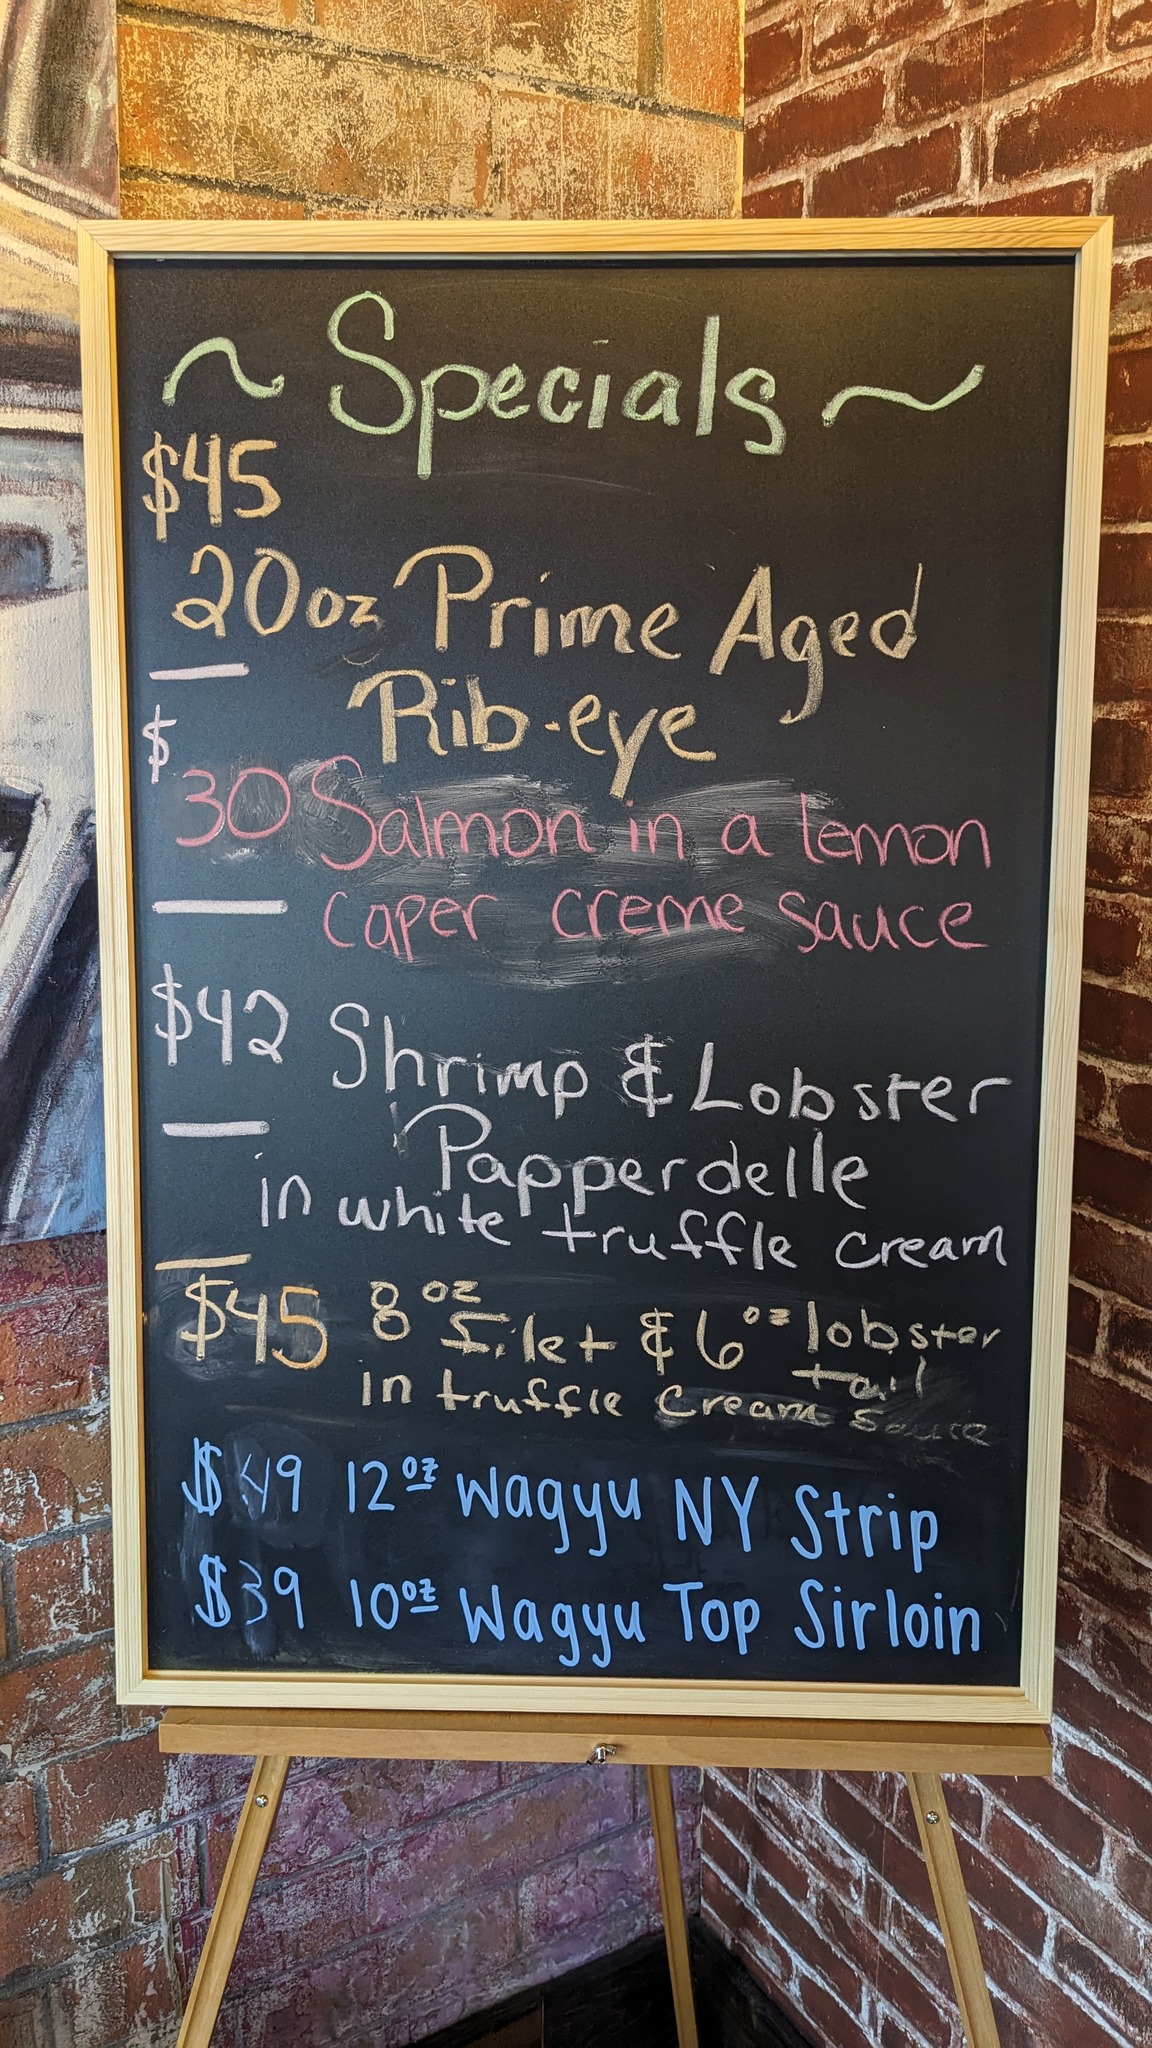 ~ Specials ~
$45
20oz Prime Aged
Rib-eye
$
30 Salmon in a lemon
caper creme sauce
$42 Shrimp & Lobster
Papperdelle
in white truffle cream
$45 8oz filet & 6oz lobster
tail
in truffle cream sauce
$49 12oz Wagyu NY Strip
$39 10oz Wagyu Top Sirloin